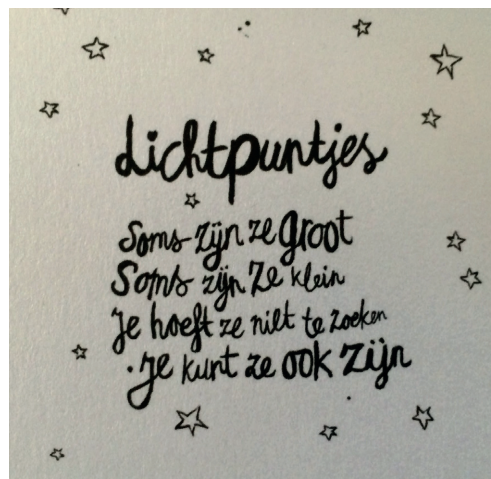 Lichtpuntjes
Soms zijn ze groot
Soms zijn ze klein
Je hoeft ze niet te zoeken
Je kunt ze ook zijn